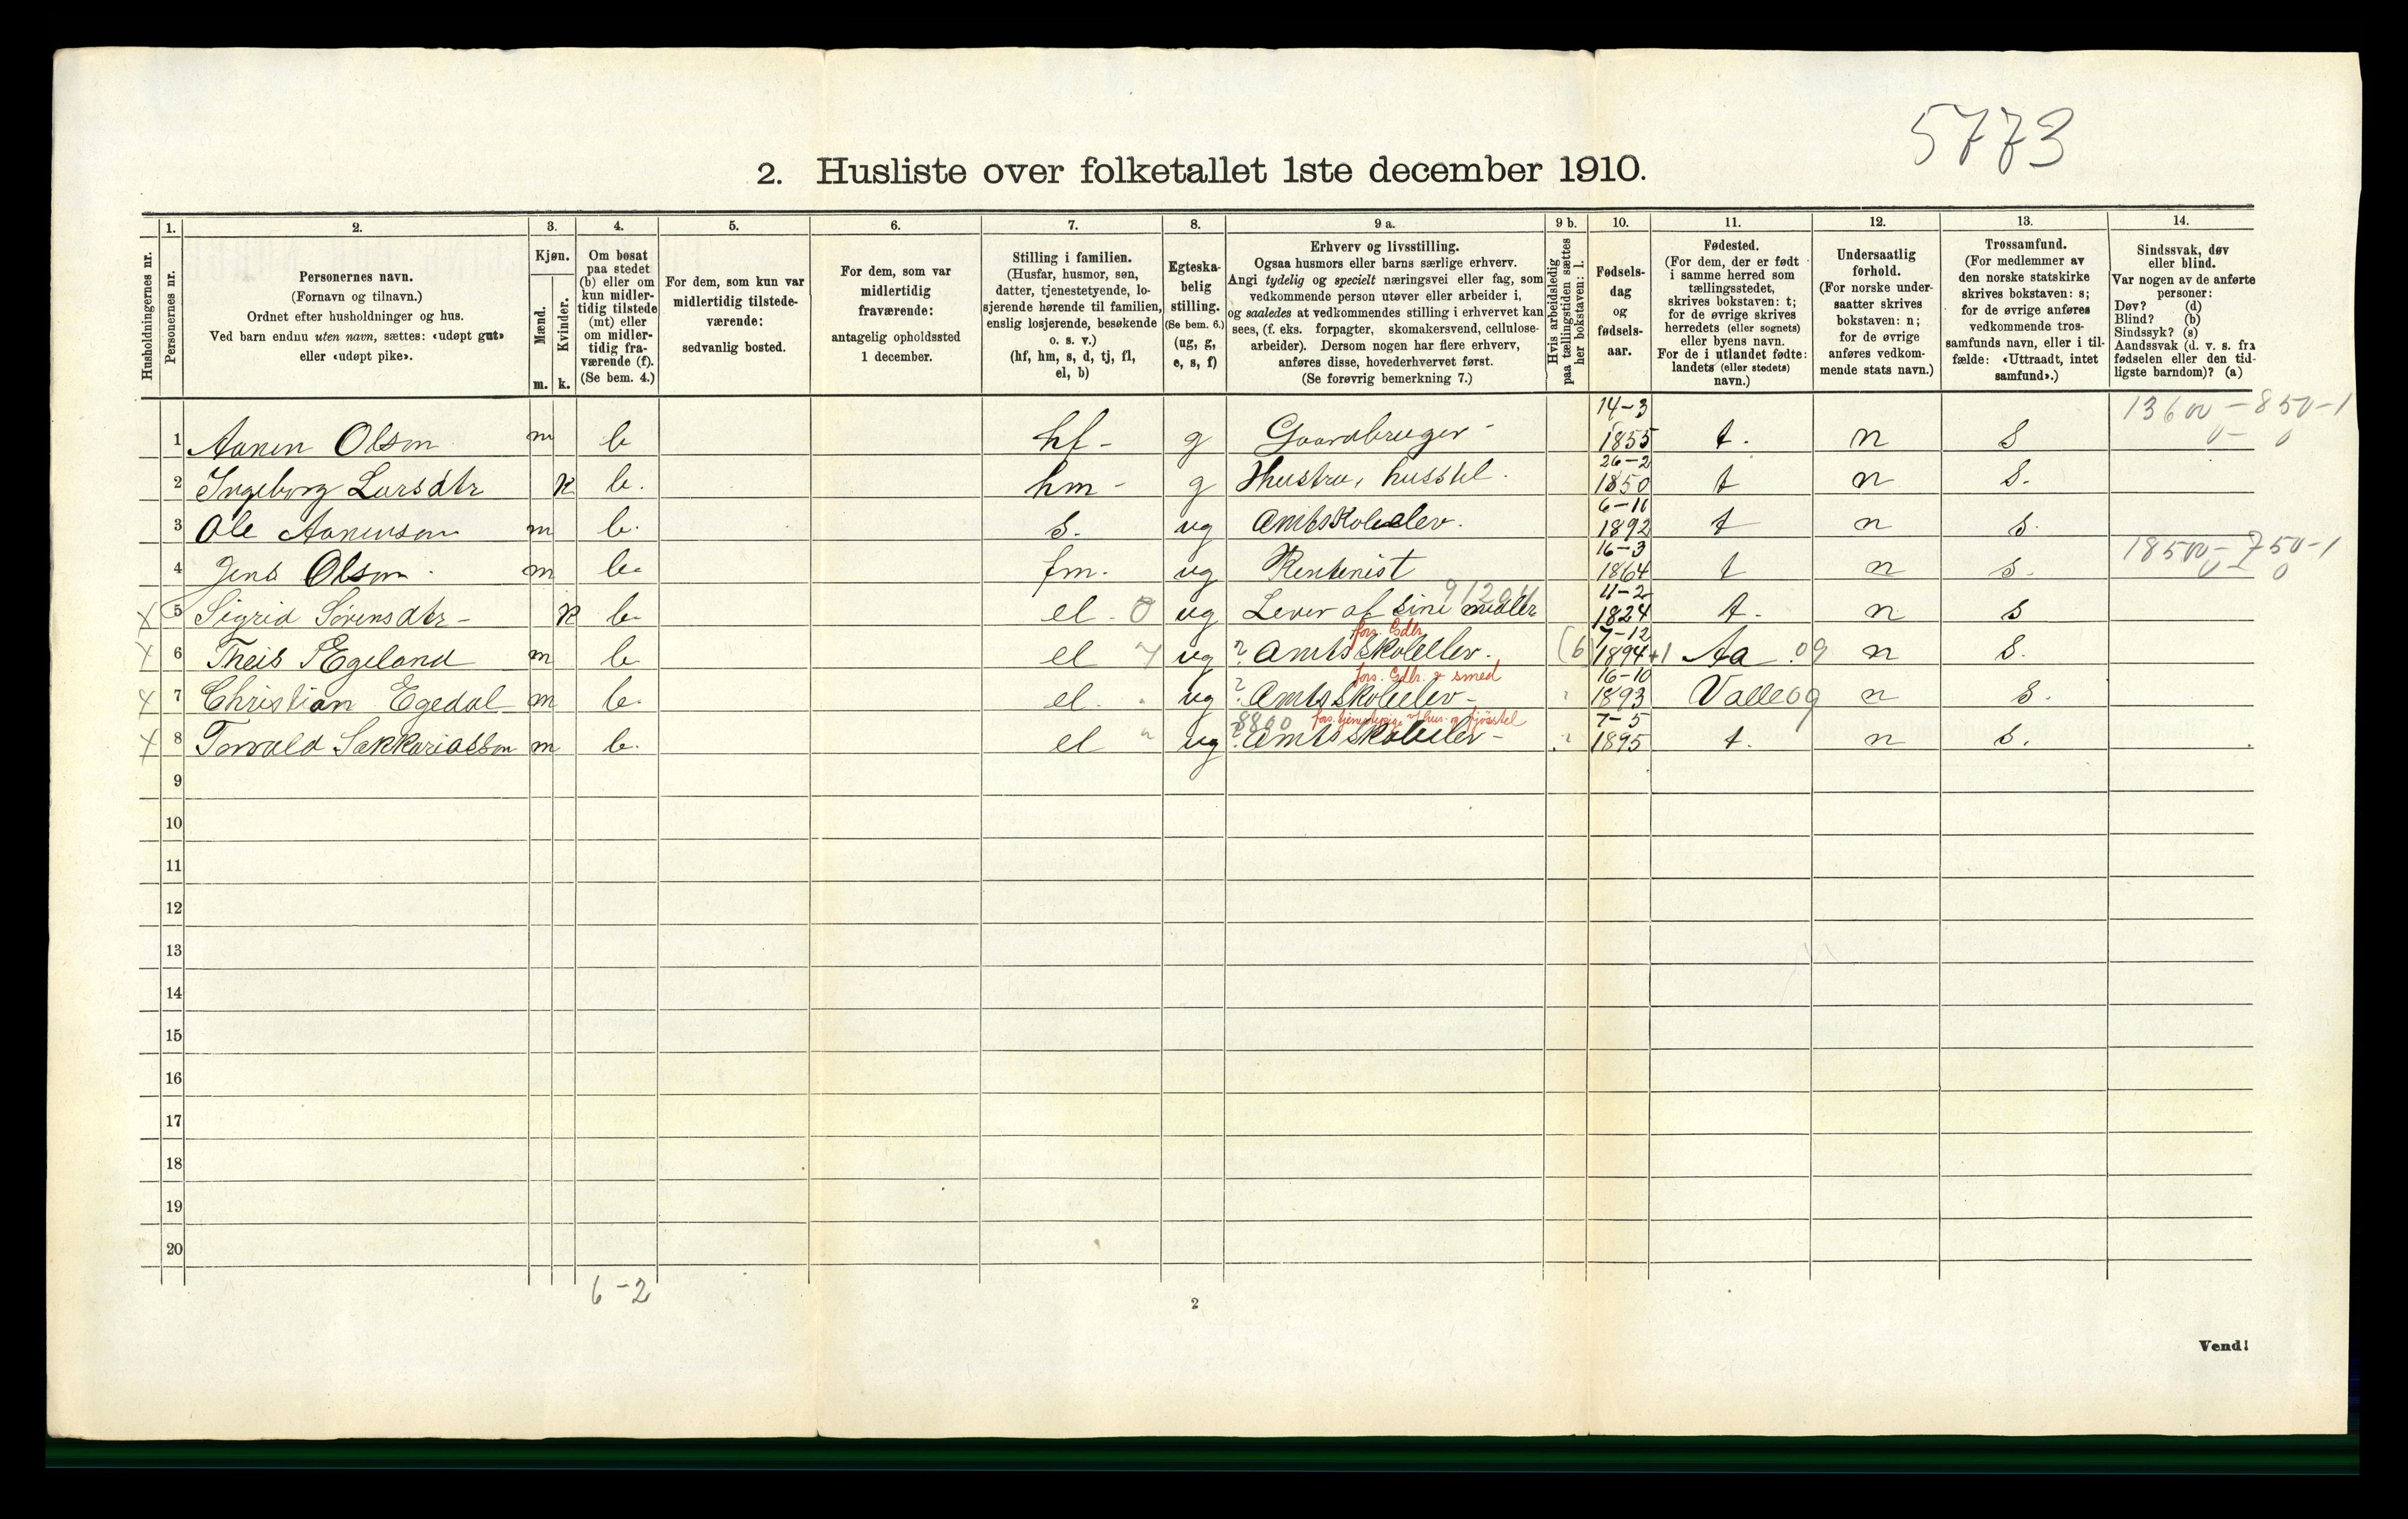 5773
2. Husliste over folketallet 1ste december 1910.
Husholdningernes nr.
1.
Personernes nr.
2.
Personernes navn.
(Fornavn og tilnavn.)
Ordnet efter husholdninger og hus.
Ved barn endnu uten navn, sættes: «udøpt gut»
eller «udøpt pike».
3.
Kjøn.
Mænd.
m.
Kvinder.
k.
4.
Om bosat
paa stedet
(b) eller om
kun midler-
tidig tilstede
(mt) eller
om midler-
tidig fra-
værende (f).
(Se bem. 4.)
5.
For dem, som kun var
midlertidig tilstede-
værende:
sedvanlig bosted.
6.
For dem, som var
midlertidig
fraværende:
antagelig opholdssted
1 december.
7.
Stilling i familien.
(Husfar, husmor, søn,
datter, tjenestetyende, lo-
sjerende hørende til familien,
enslig losjerende, besøkende
o. s. v.)
(hf, hm, s, d, tj, fl,
el, b)
8.
Egteska-
belig
stilling.
(Se bem. 6.)
(ug, g,
e, s, f)
9 a.
Erhverv og livsstilling.
Ogsaa husmors eller barns særlige erhverv.
Angi tydelig og specielt næringsvei eller fag, som
vedkommende person utøver eller arbeider i,
og saaledes at vedkommendes stilling i erhvervet kan
sees, (f. eks. forpagter, skomakersvend, cellulose-
arbeider). Dersom nogen har flere erhverv,
anføres disse, hovederhvervet først.
(Se forøvrig bemerkning 7.)
9 b.
Hvis arbeidsledig
paa tællingstiden sættes
her bokstaven: l.
10.
Fødsels-
dag
og
fødsels-
aar.
11.
Fødested.
(For dem, der er født
i samme herred som
tællingsstedet,
skrives bokstaven: t;
for de øvrige skrives
herredets (eller sognets)
eller byens navn.
For de i utlandet fødte:
landets (eller stedets)
navn.)
12.
Undersaatlig
forhold.
(For norske under-
saatter skrives
bokstaven: n;
for de øvrige
anføres vedkom-
mende stats navn.)
13.
Trossamfund.
(For medlemmer av
den norske statskirke
skrives bokstaven: s;
for de øvrige anføres
vedkommende tros-
samfunds navn, eller i til-
fælde: «Uttraadt, intet
samfund».)
14.
Sindssvak, døv
eller blind.
Var nogen av de anførte
personer:
Døv? (d)
Blind? (b)
Sindssyk? (s)
Aandssvak (d. v. s. fra
fødselen eller den tid-
ligste barndom)? (a)
13600-850-1
0- 0
1 Aanen Olsen m b hf- g Gaardbruger- 14-3 1855 t. n s
2 Ingeborg Larsdtr k b. hm- g Hustru, husstel. 26-2 1850 t n s.
3 Ole Aanenson m b. s. ug Amtsskoleelev. 6-11 1892 t n s.
18500-750-1
0- 0
4 Jens Olsen. m b. fm. ug Rentenist 16-3 1864 t n s.
X 5 Sigrid Sørensdtr- k b. el. 0 ug Lever af sine midler 11-2 1824 t. n s
fors. Gdbr.
X 6 Theis Egeland m b el ug ? Amtsskoleelev. (6) 7-12 1894 +1 Aa 09 n s.
fors. Gdbr. & smed
X 7 Christian Egedal m b. el. ug ? Amtsskoleelev- 16-10 1893 Valle 09 n s.
8800
X 8 Torvald Sakkariassen m b. el " ug ? Amtsskoleelev- 7-5 1895 t. n s.
9
10
11
12
13
14
15
16
17
18
19
20
6-2
2
Vend!